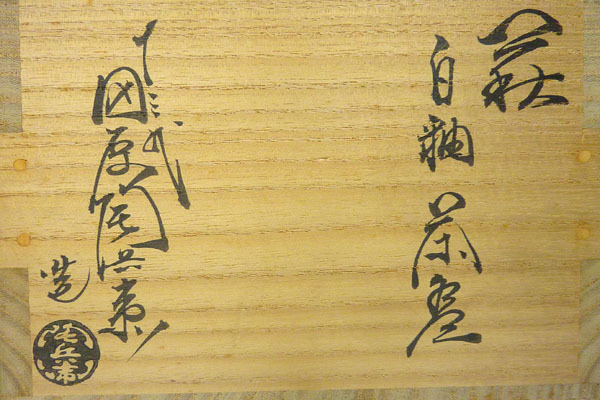 萩
白釉 茶盌
十三代
田原陶兵衛
造
陶兵衛